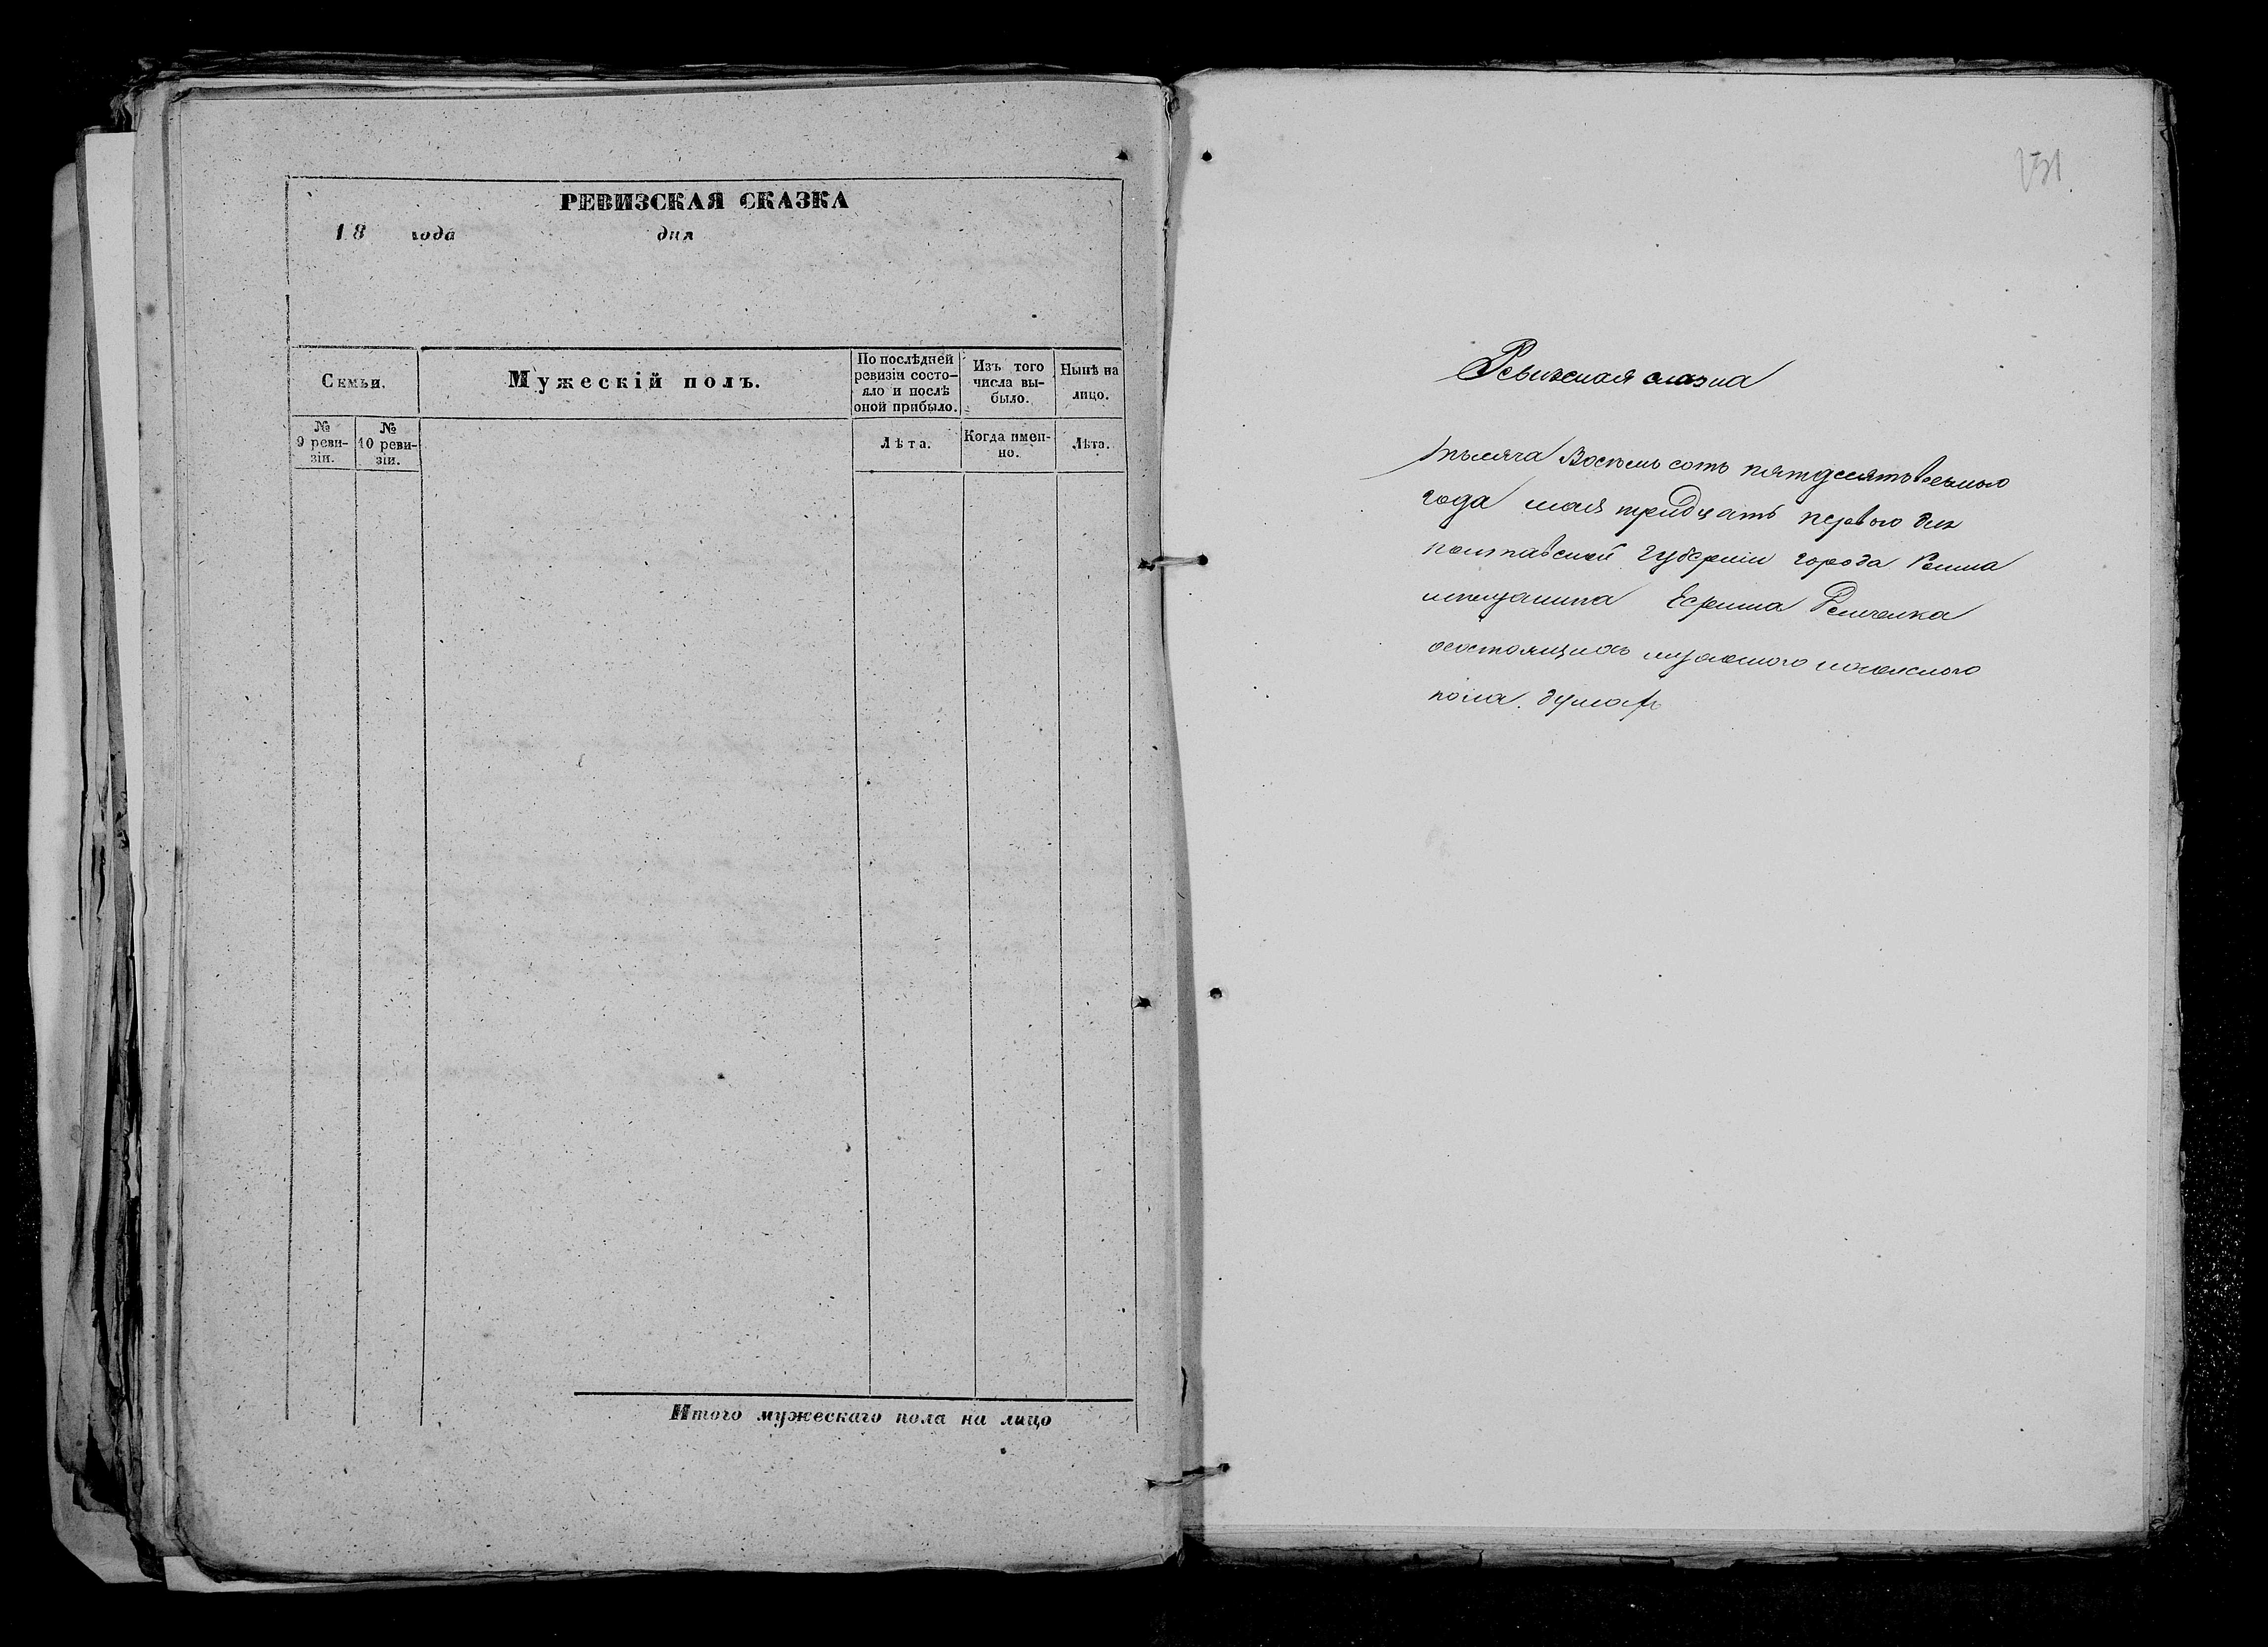 РЕВИЗСКАЯ СКАЗКА
18 года дня
Семьи.
Мужескій полъ.
По послѣдней ревизіи состо-
яло и послѣ
оной прибыло.
Изъ того
числа вы-
было.
Нынѣ на
лицо.
№
9 реви-
зіи.
№
10 реви-
зіи.
Лѣта.
Когда имен-
но.
Лѣта.
Итого мужескаго пола на лицо
131
Ревизская сказка
тысяча Восемь сотъ пятдесятъ восьмого
года мая тридцать первого дня
полтавской губерніи города Ромна
мещанина Ефрима
осостоящихъ мужского иженского
пола. душахъ